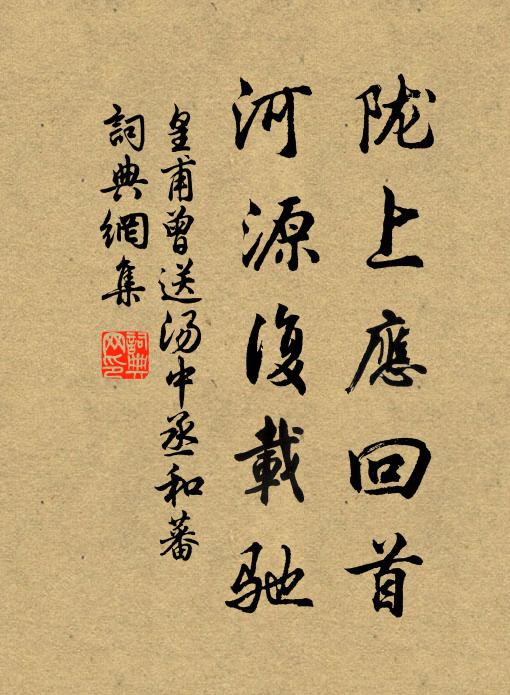 陇上應回首
河源復載馳
皇甫曾送汤中丞和蕃
詞典網集
詞典網印